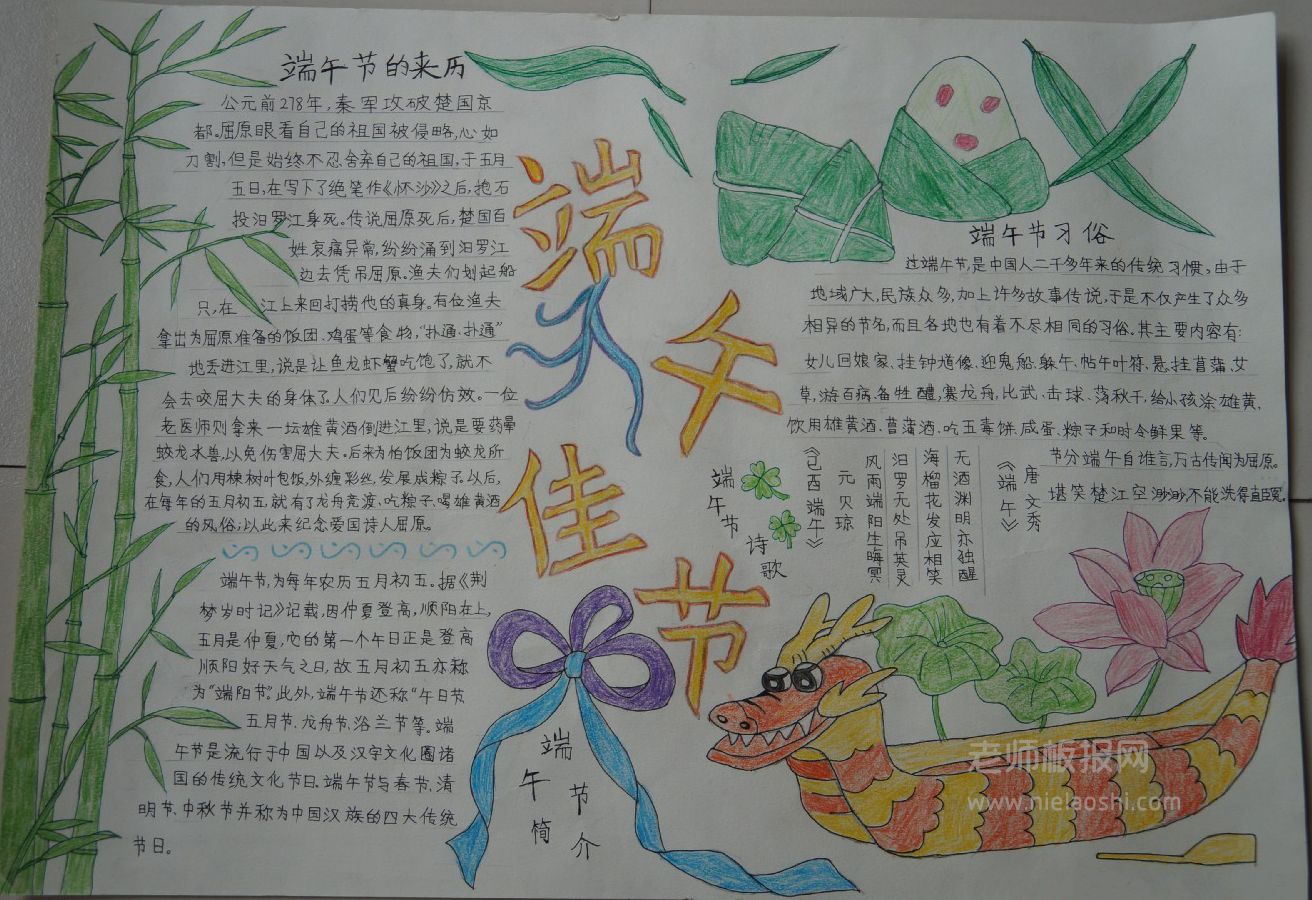 端午节的来历
公元前278年，秦军攻破楚国京
都。屈原眼看自己的祖国被侵略，心如
刀割，但是始终不忍舍弃自己的祖国，于五月
五日，在写下了绝笔作《怀沙》之后，抱石
投汨罗江身死。传说屈原死后，楚国百
姓哀痛异常，纷纷涌到汨罗江
边去凭吊屈原。渔夫们划起船
只，在 江上来回打捞他的真身。有位渔夫
拿出为屈原准备的饭团、鸡蛋等食物，“扑通、扑通”
地丢进江里，说是让鱼龙虾蟹吃饱了，就不
会去咬屈大夫的身体了。人们见后纷纷仿效。一位
老医师则拿来一坛雄黄酒倒进江里，说是要药晕
蛟龙水兽，以免伤害屈大夫。后来为怕饭团为蛟龙所
食，人们用楝树叶包饭，外缠彩丝，发展成粽子。以后，
在每年的五月初五，就有了龙舟竞渡、吃粽子、喝雄黄酒
的风俗；以此来纪念爱国诗人屈原。
端午节，为每年农历五月初五。据《荆
梦岁时记》记载，因仲夏登高，顺阳在上，
五月是仲夏，它的第一个午日正是登高
顺阳好天气之日，故五月初五亦称
为“端阳节”。此外，端午节还称“午日节、
五月节、龙舟节、浴兰节等。端
午节是流行于中国以及汉字文化圈诸
国的传统文化节日。端午节与春节、清
明节、中秋节并称为中国汉族的四大传统
节日。
端午佳节
端午节简介
端午节习俗
过端午节，是中国人二千多年来的传统习惯，由于
地域广大，民族众多，加上许多故事传说，于是不仅产生了众多
相异的节名，而且各地也有着不尽相同的习俗。其主要内容有：
女儿回娘家、挂钟馗像、迎鬼船、躲午、帖午叶符、悬挂菖蒲、艾
草，游百病、备牲醴，赛龙舟，比武、击球、荡秋千，给小孩涂雄黄，
饮用雄黄酒、菖蒲酒、吃五毒饼、咸蛋、粽子和时令鲜果等。
端午节诗歌
《己酉端午》
元 贝琼
风雨端阳生晦冥
汨罗无处吊英灵
海榴花发应相笑
无酒渊明亦独醒
《端午》
唐 文秀
节分端午自谁言，万古传闻为屈原。
堪笑楚江空渺渺，不能洗得直臣冤。
老师板报网
www.nielaoshi.com